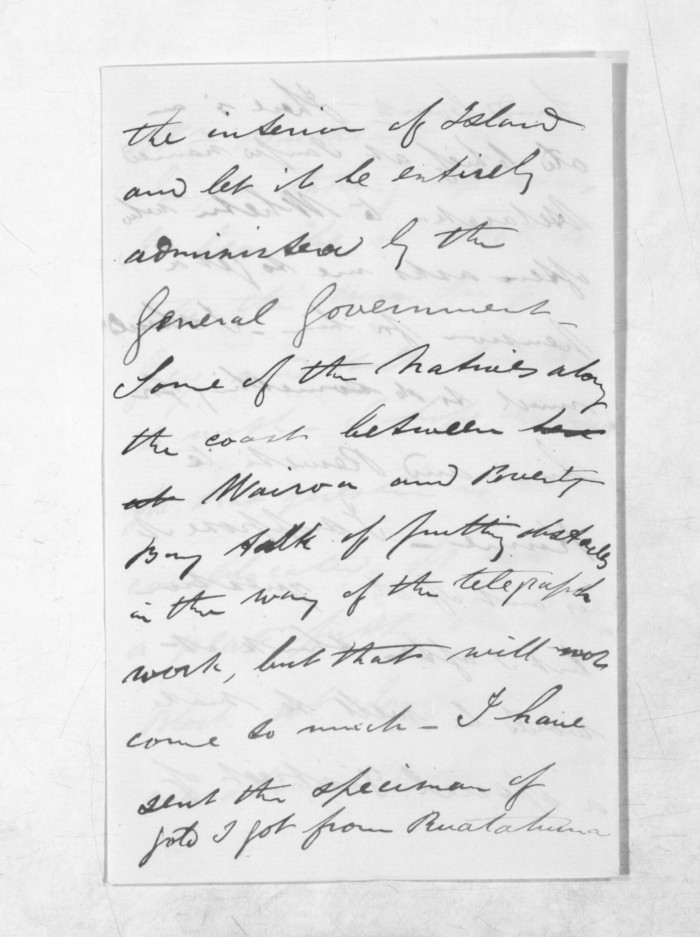 the interior of Island
and let it be entirely
administered by the
General Government -
Some of the Natives along
the coast between
Wairoa and Poverty
Bay talk of putting obstacles
in the way of the telegraph
work, but that will not
come to much - I have
sent the speciman of
gold I got from Ruatahuna